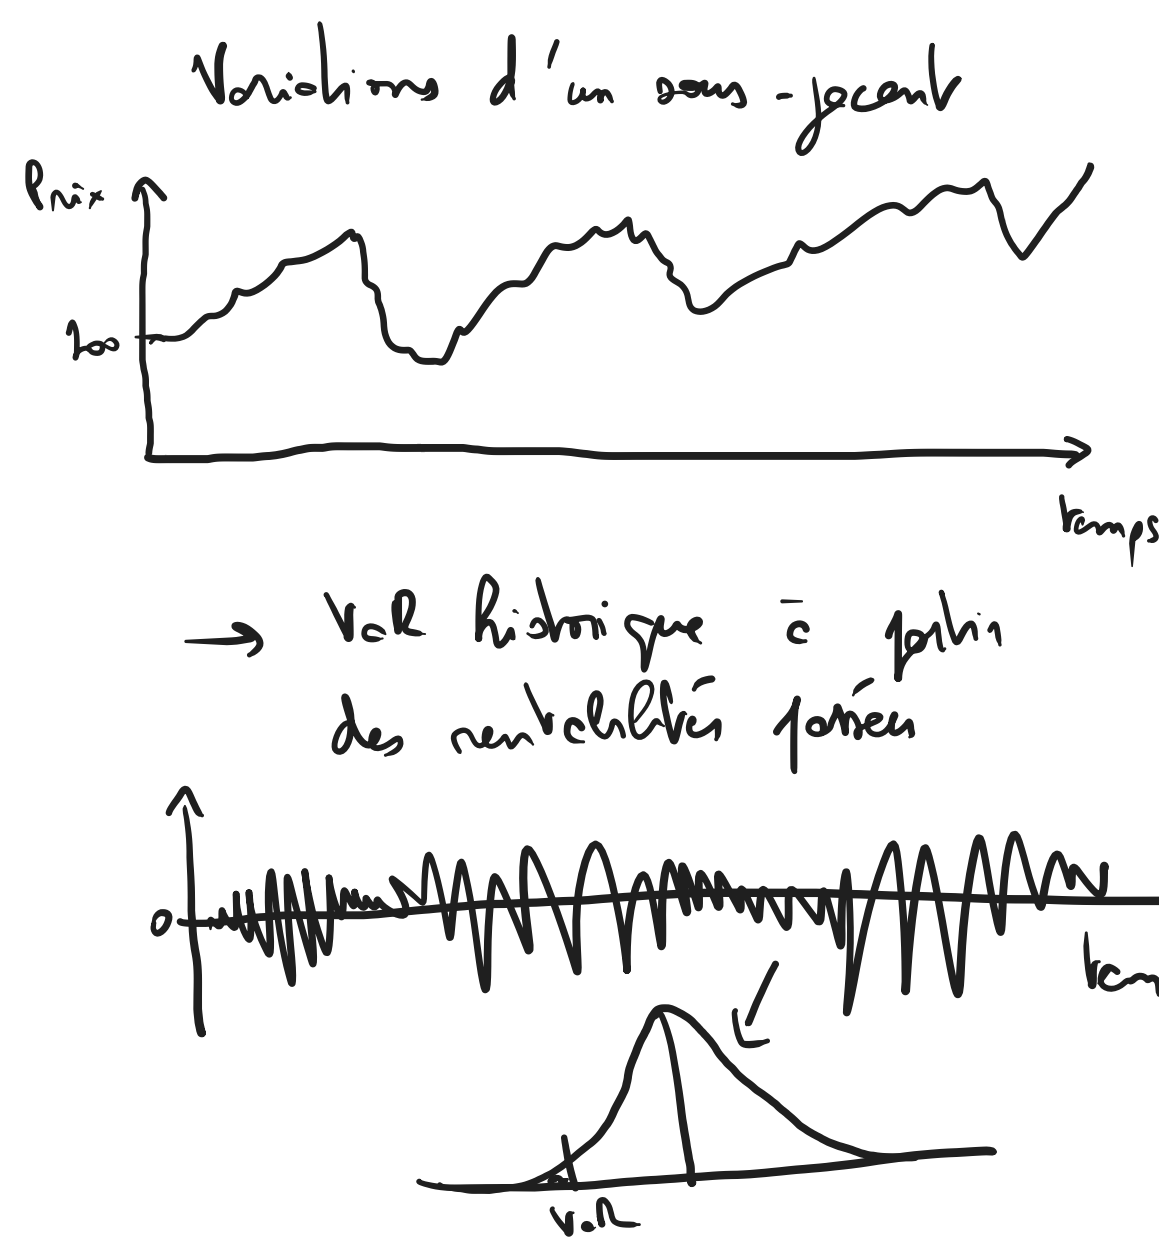 Variations d'un sous-jacent
Prix
100
temps
→ VaR historique à partir
des rentabilités passées
0
VaR